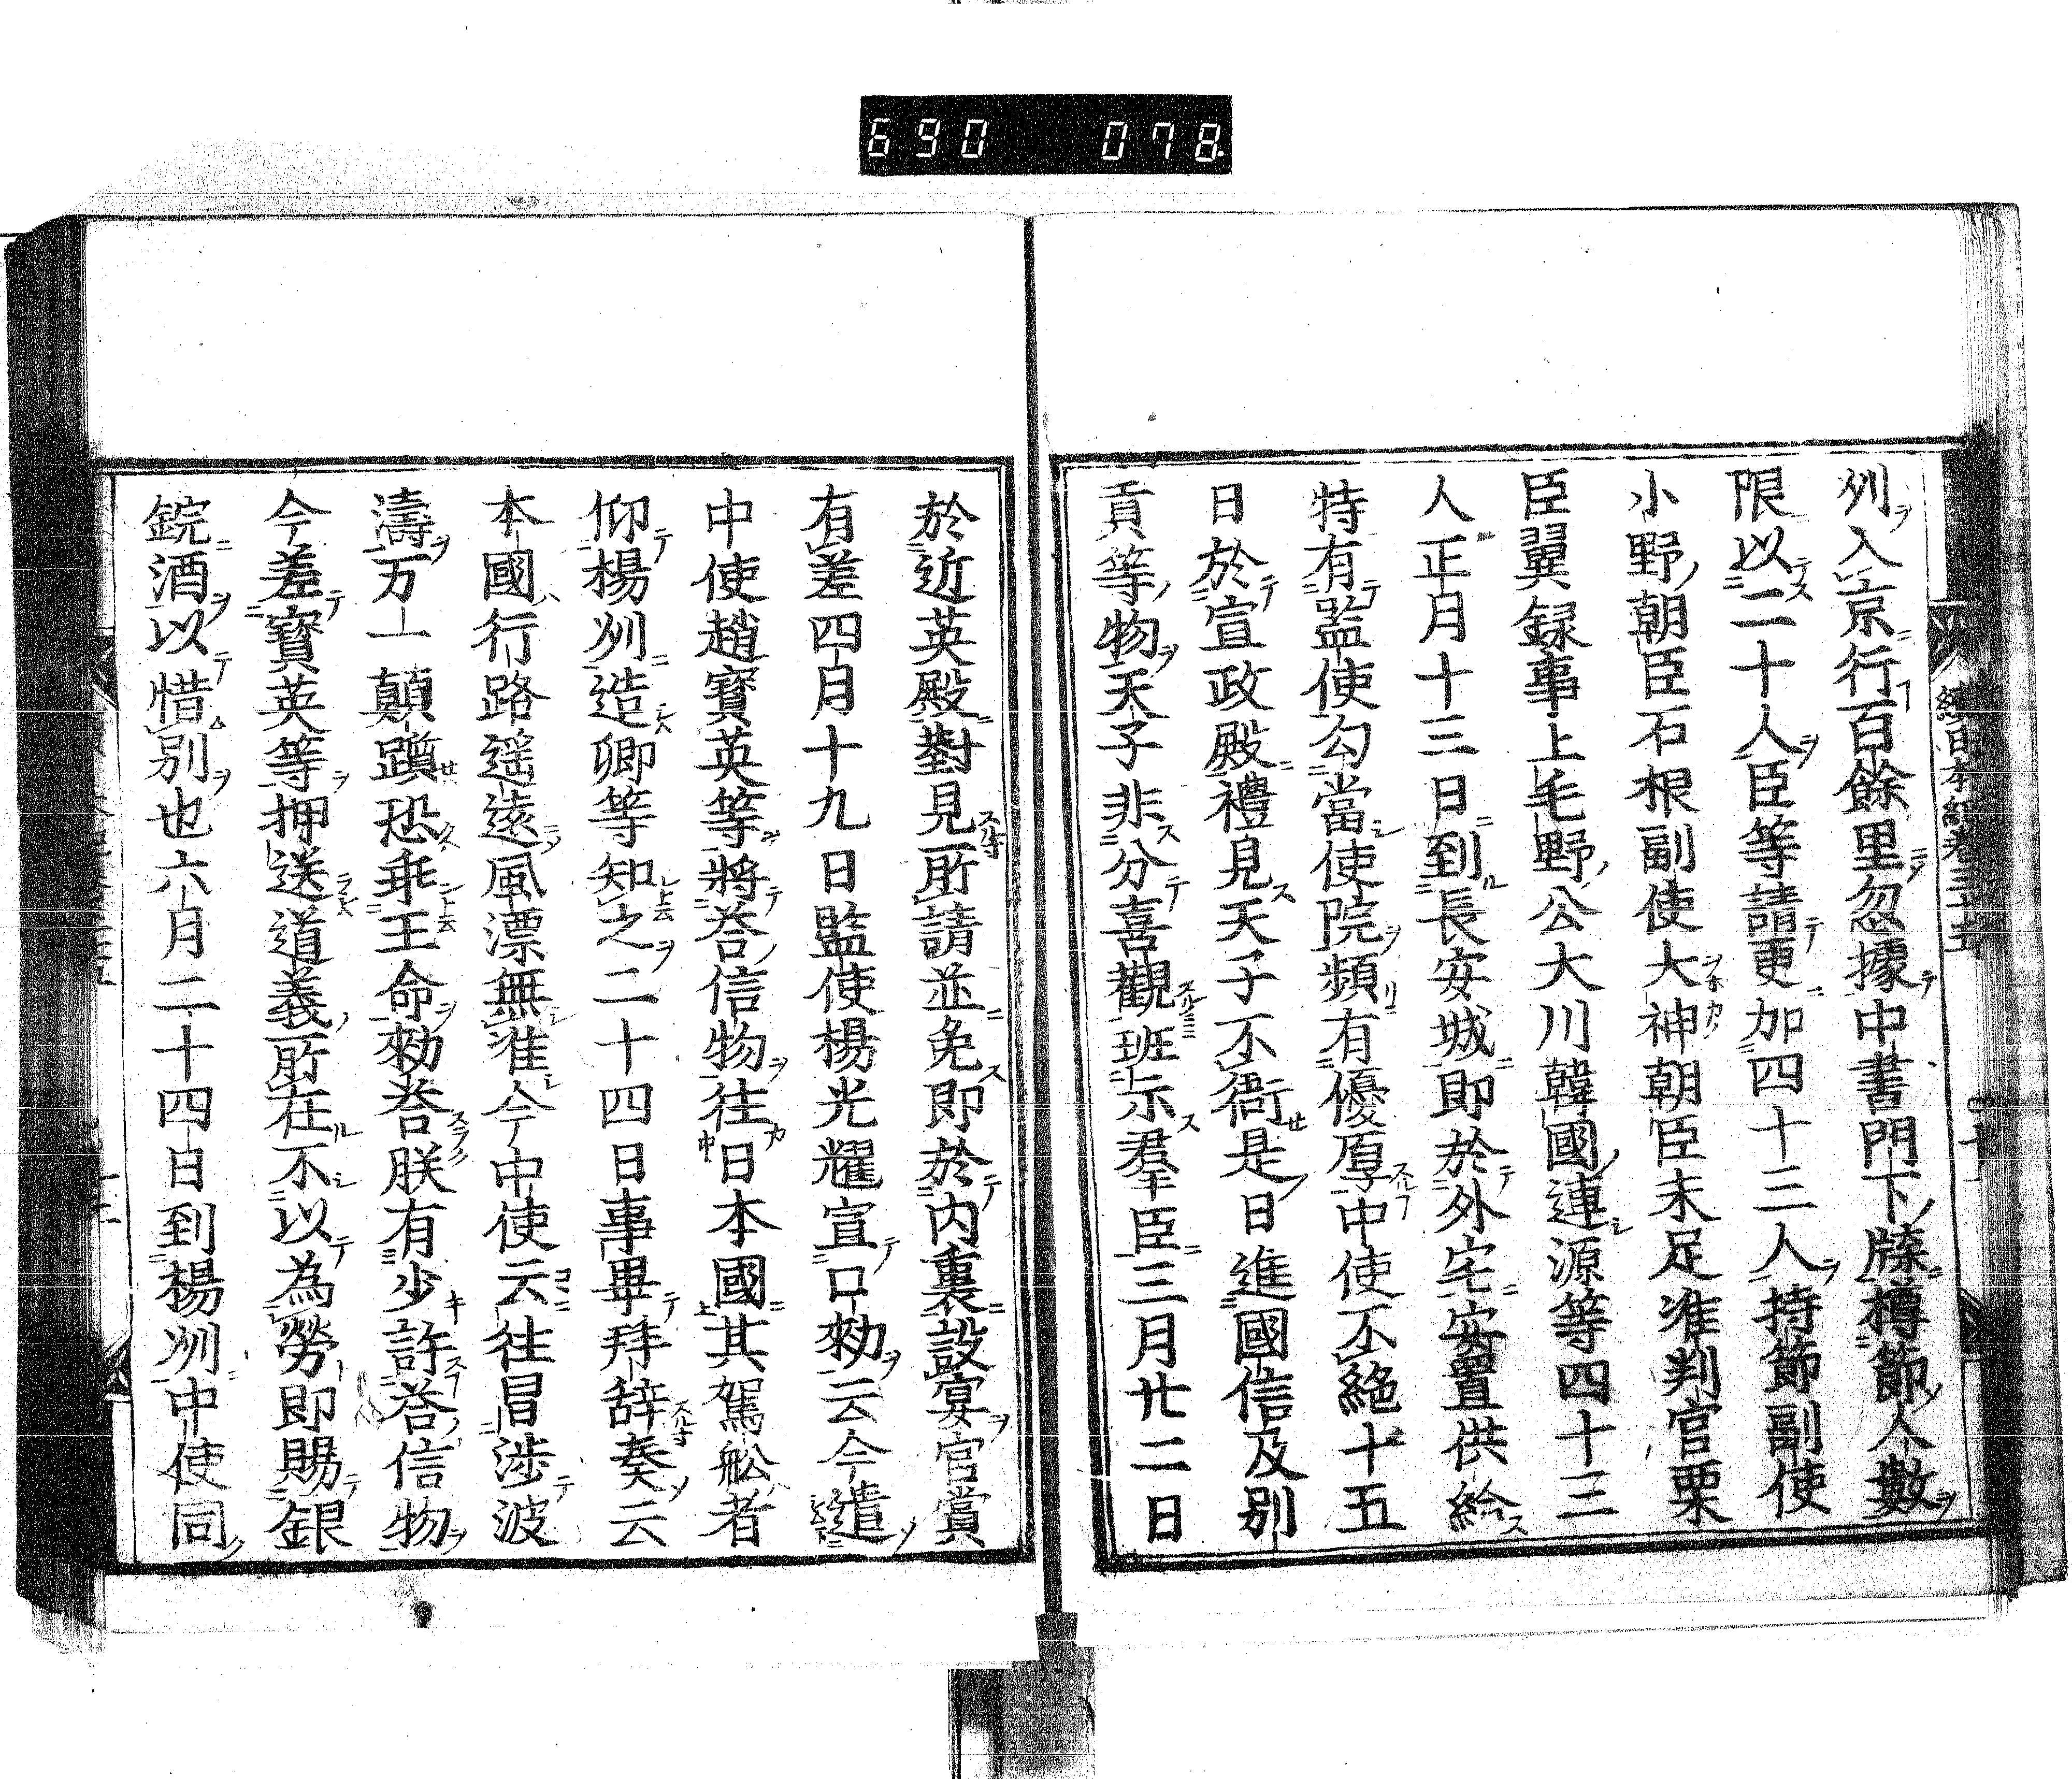 690 078
列入京行百餘里忽據中書門下牒樽節人數
限以二十人臣等請更加四十三人持節副使
小野朝臣石根副使大神朝臣末足准判官栗
臣翼録事上毛野公大川韓國連源等四十三
人正月十三日到長安城即於外宅安置供給
特有監使勾當使院頻有優厚中使不絶十五
日於宣政殿禮見天子不衙是日進國信及別
貢等物天子非分喜觀班示羣臣三月廿二日
於近英殿對見所請並免即於内裏設宴官賞
有差四月十九日監使楊光耀宣口勑云今遣
中使趙寶英等將荅信物徃日本國其駕舩者
仰楊州造卿等知之二十四日事畢拜辞奏云
本國行路遥遠風漂無准今中使云徃冒渉波
濤万一顛躓恐乖王命勑荅朕有少許荅信物
今差寶英等押送道義所在不以為勞即賜銀
鋺酒以惜別也六月二十四日到楊州中使同